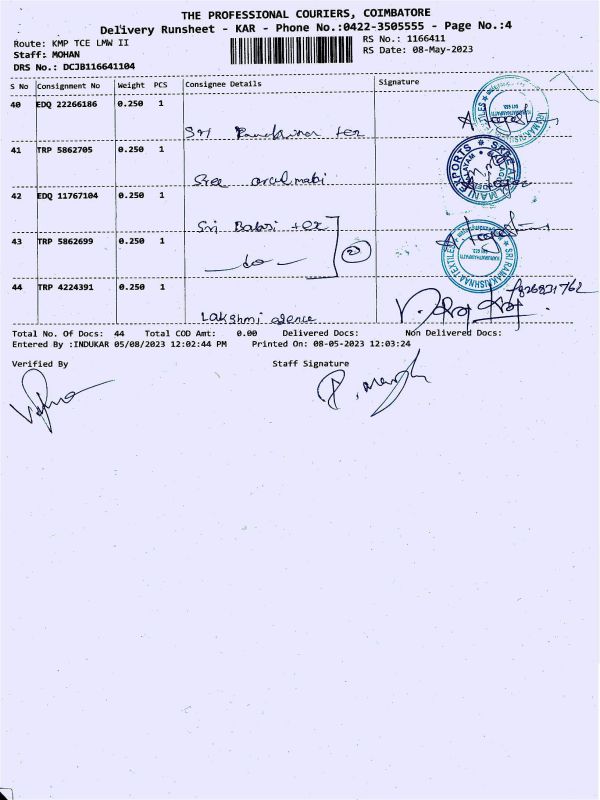 THE PROFESSIONAL COURIERS, COIMBATORE
Delivery Runsheet - KAR - Phone No.:0422-3505555 - Page No.:4
Route: KMP TCE LMW II
RS No.: 1166411
Staff: MOHAN
RS Date: 08-May-2023
DRS No.: DCJB116641104
S No Consignment No Weight PCS Consignee Details Signature
40 EDQ 22266186 0.250 1
Sri tex
41 TRP 5862705 0.250 1
Sree
42 EDQ 11767104 0.250 1
Sri Balaji tex
43 TRP 5862699 0.250 1
- do -
44 TRP 4224391 0.250 1
Lakshmi agence
Total No. Of Docs: 44 Total COD Amt: 0.00 Delivered Docs: Non Delivered Docs:
Entered By :INDUKAR 05/08/2023 12:02:44 PM Printed On: 08-05-2023 12:03:24
Verified By Staff Signature
SRI RAMAKRISHNA TEXTILES